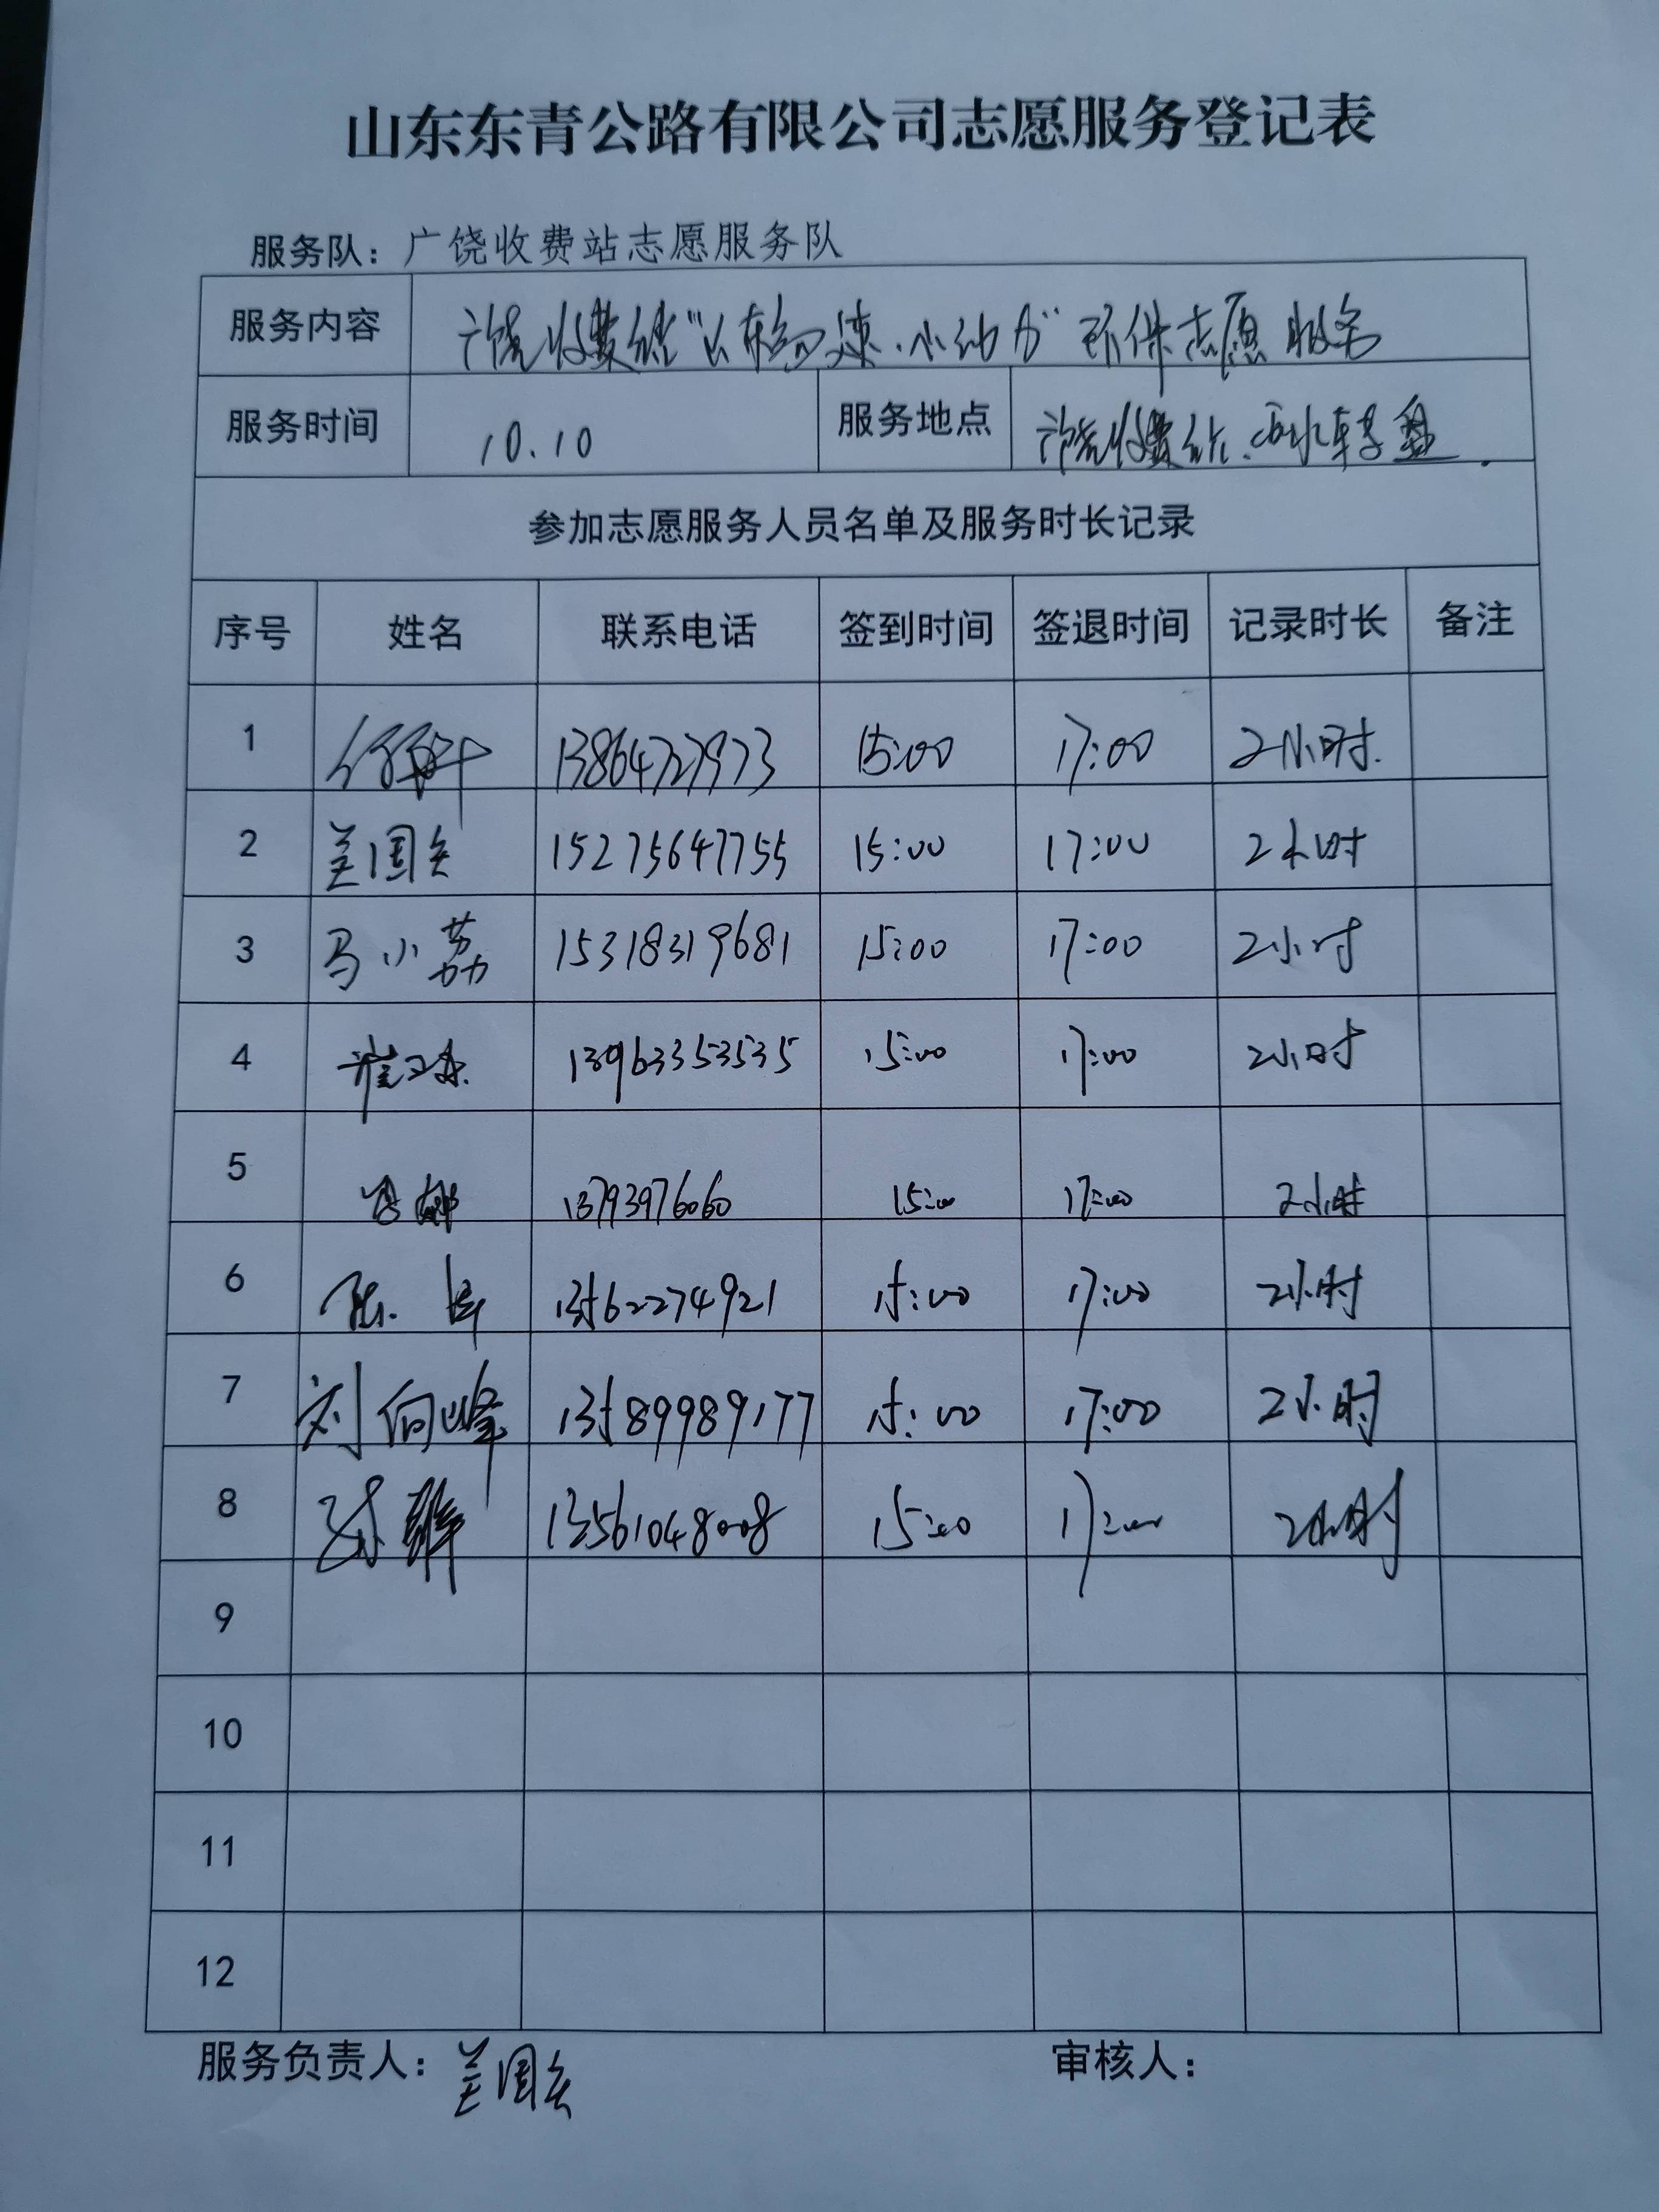 山东东青公路有限公司志愿服务登记表
服务队：广饶收费站志愿服务队
服务内容 广饶收费站 志愿服务
服务时间 10.10 服务地点 广饶收费站、转盘.
参加志愿服务人员名单及服务时长记录
序号 姓名 联系电话 签到时间 签退时间 记录时长 备注
1 13864727973 15:00 17:00 2小时.
2 15275647755 15:00 17:00 2小时
3 马小荔 15318319681 15:00 17:00 2小时
4 13963353535 15:00 17:00 2小时
5 13793976060 15:00 17:00 2小时
6 13562274921 15:00 17:00 2小时
7 刘向峰 13589989177 15:00 17:00 2小时
8 13561048008 15:00 17:00 2小时
9
10
11
12
服务负责人： 审核人：